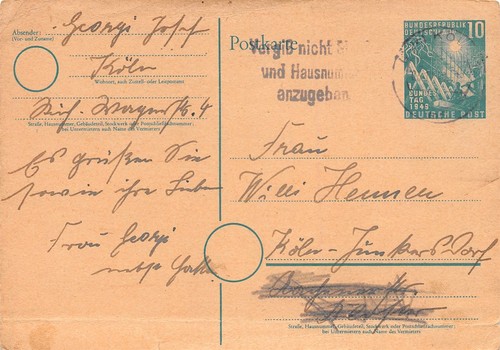 Absender:
(Vor- und Zuname)
Georgi Josef
Köln
Wohnort, auch Zustell- oder Leitpostamt
Rich. Wagnerstr. 4
Straße, Hausnummer, Gebäudeteil, Stockwerk oder Postschließfachnummer;
bei Untermietern auch Name des Vermieters
Es grüßen Sie
sowie ihre Lieben
Frau Georgi
nebst
Postkarte
Vergiß nicht
und Hausnummer
anzugeben
BUNDESREPUBLIK
DEUTSCHLAND
10
BUNDES
TAG
1949
DEUTSCHE POST
Frau
Willi Hennen
Köln-Junkersdorf
Straße, Hausnummer, Gebäudeteil, Stockwerk oder Postschließfachnummer;
bei Untermietern auch Name des Vermieters